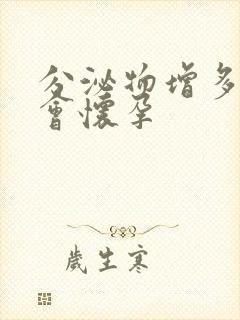 分泌物增多
會懷孕
歲生寒